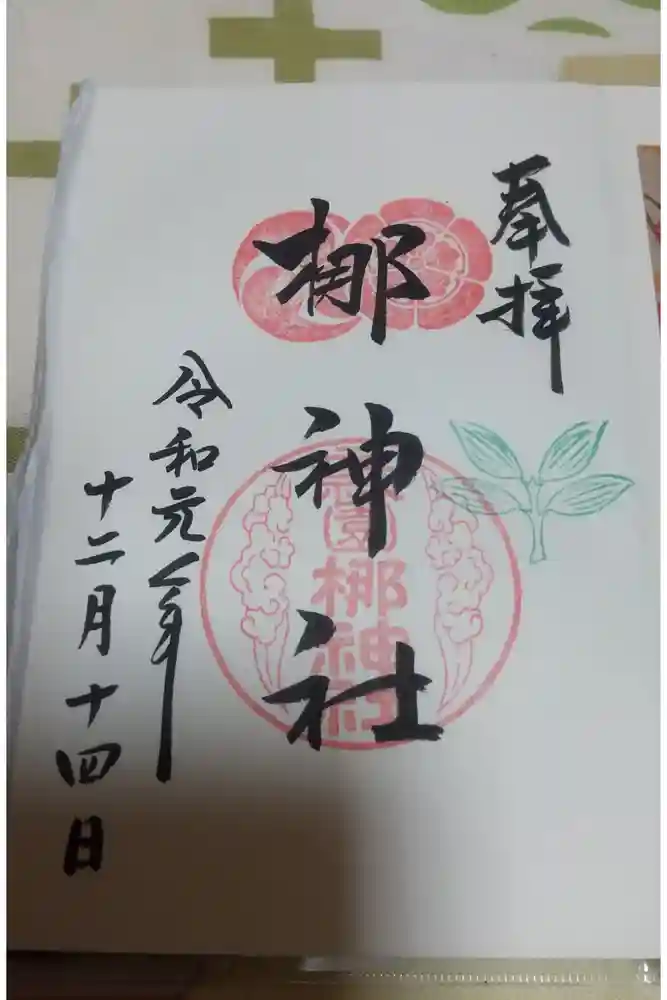 奉拝
梛神社
令和元年
十二月十四日
梛神社